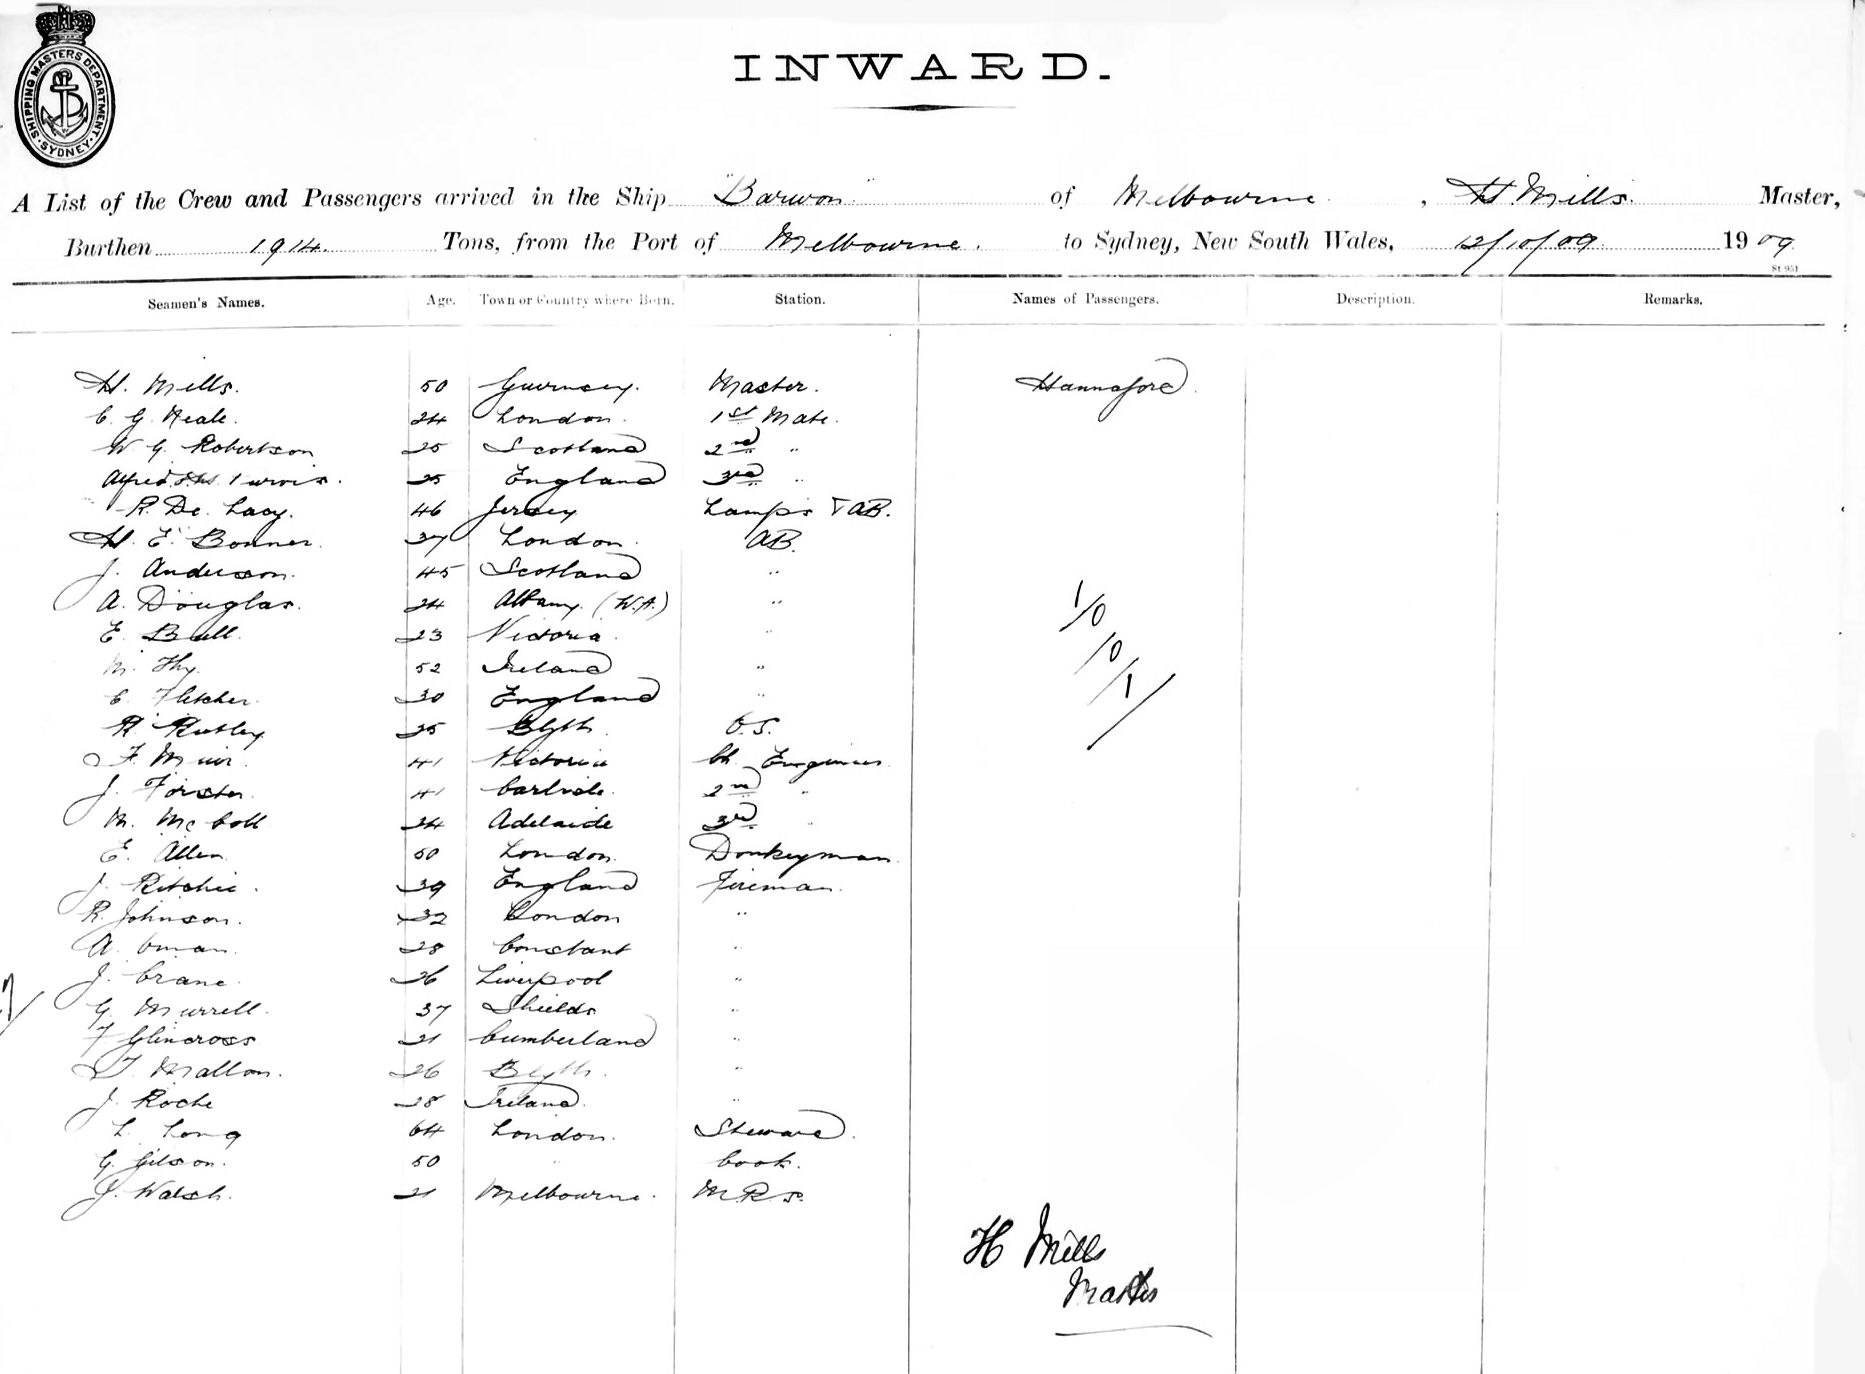 SHIPPING MASTERS DEPARTMENT
SYDNEY
INWARD.
A List of the Crew and Passengers arrived in the Ship "Barwon" of Melbourne, H Mills. Master,
Burthen 1914 Tons, from the Port of Melbourne. to Sydney, New South Wales, 12/10/09 1909
St 951
Seamen's Names. Age. Town or Country where Born. Station. Names of Passengers. Description. Remarks.
H. Mills. 50 Guernsey. Master. Hannaford.
C. G. Neale. 24 London. 1st Mate.
W G. Robertson 25 Scotland 2nd "
Alfred Purvis. 25 England 3rd "
R. De. Lacy. 46 Jersey Lamps & AB.
H. E. Bonner. 37 London. AB.
J. Anderson. 45 Scotland "
A. Douglas. 24 Albany. (W.A.) "
E. Bull. 23 Victoria. "
M. 52 Ireland "
C. Fletcher. 30 England "
R. Rutley 25 Blyth. O.S.
F. Muir. 41 Victoria Ch. Engineer.
J. Forster. 41 Carlisle. 2nd "
M. McColl 24 Adelaide 3rd "
E. Allen. 50 London. Donkeyman.
J. Ritchie. 39 England Fireman.
R. Johnson. 32 London "
A. 28 Constant "
J. Crane. 26 Liverpool "
G. Murrell. 37 Shields "
F Glincross 21 Cumberland "
T. Mallon. 26 Blyth. "
J. Roche 28 Ireland. "
L. Long 64 London. Steward.
G. Gilson. 50 " Cook.
J. Walsh. 21 Melbourne. M.R.S.
1/0
/0
/1/
H Mills
Master